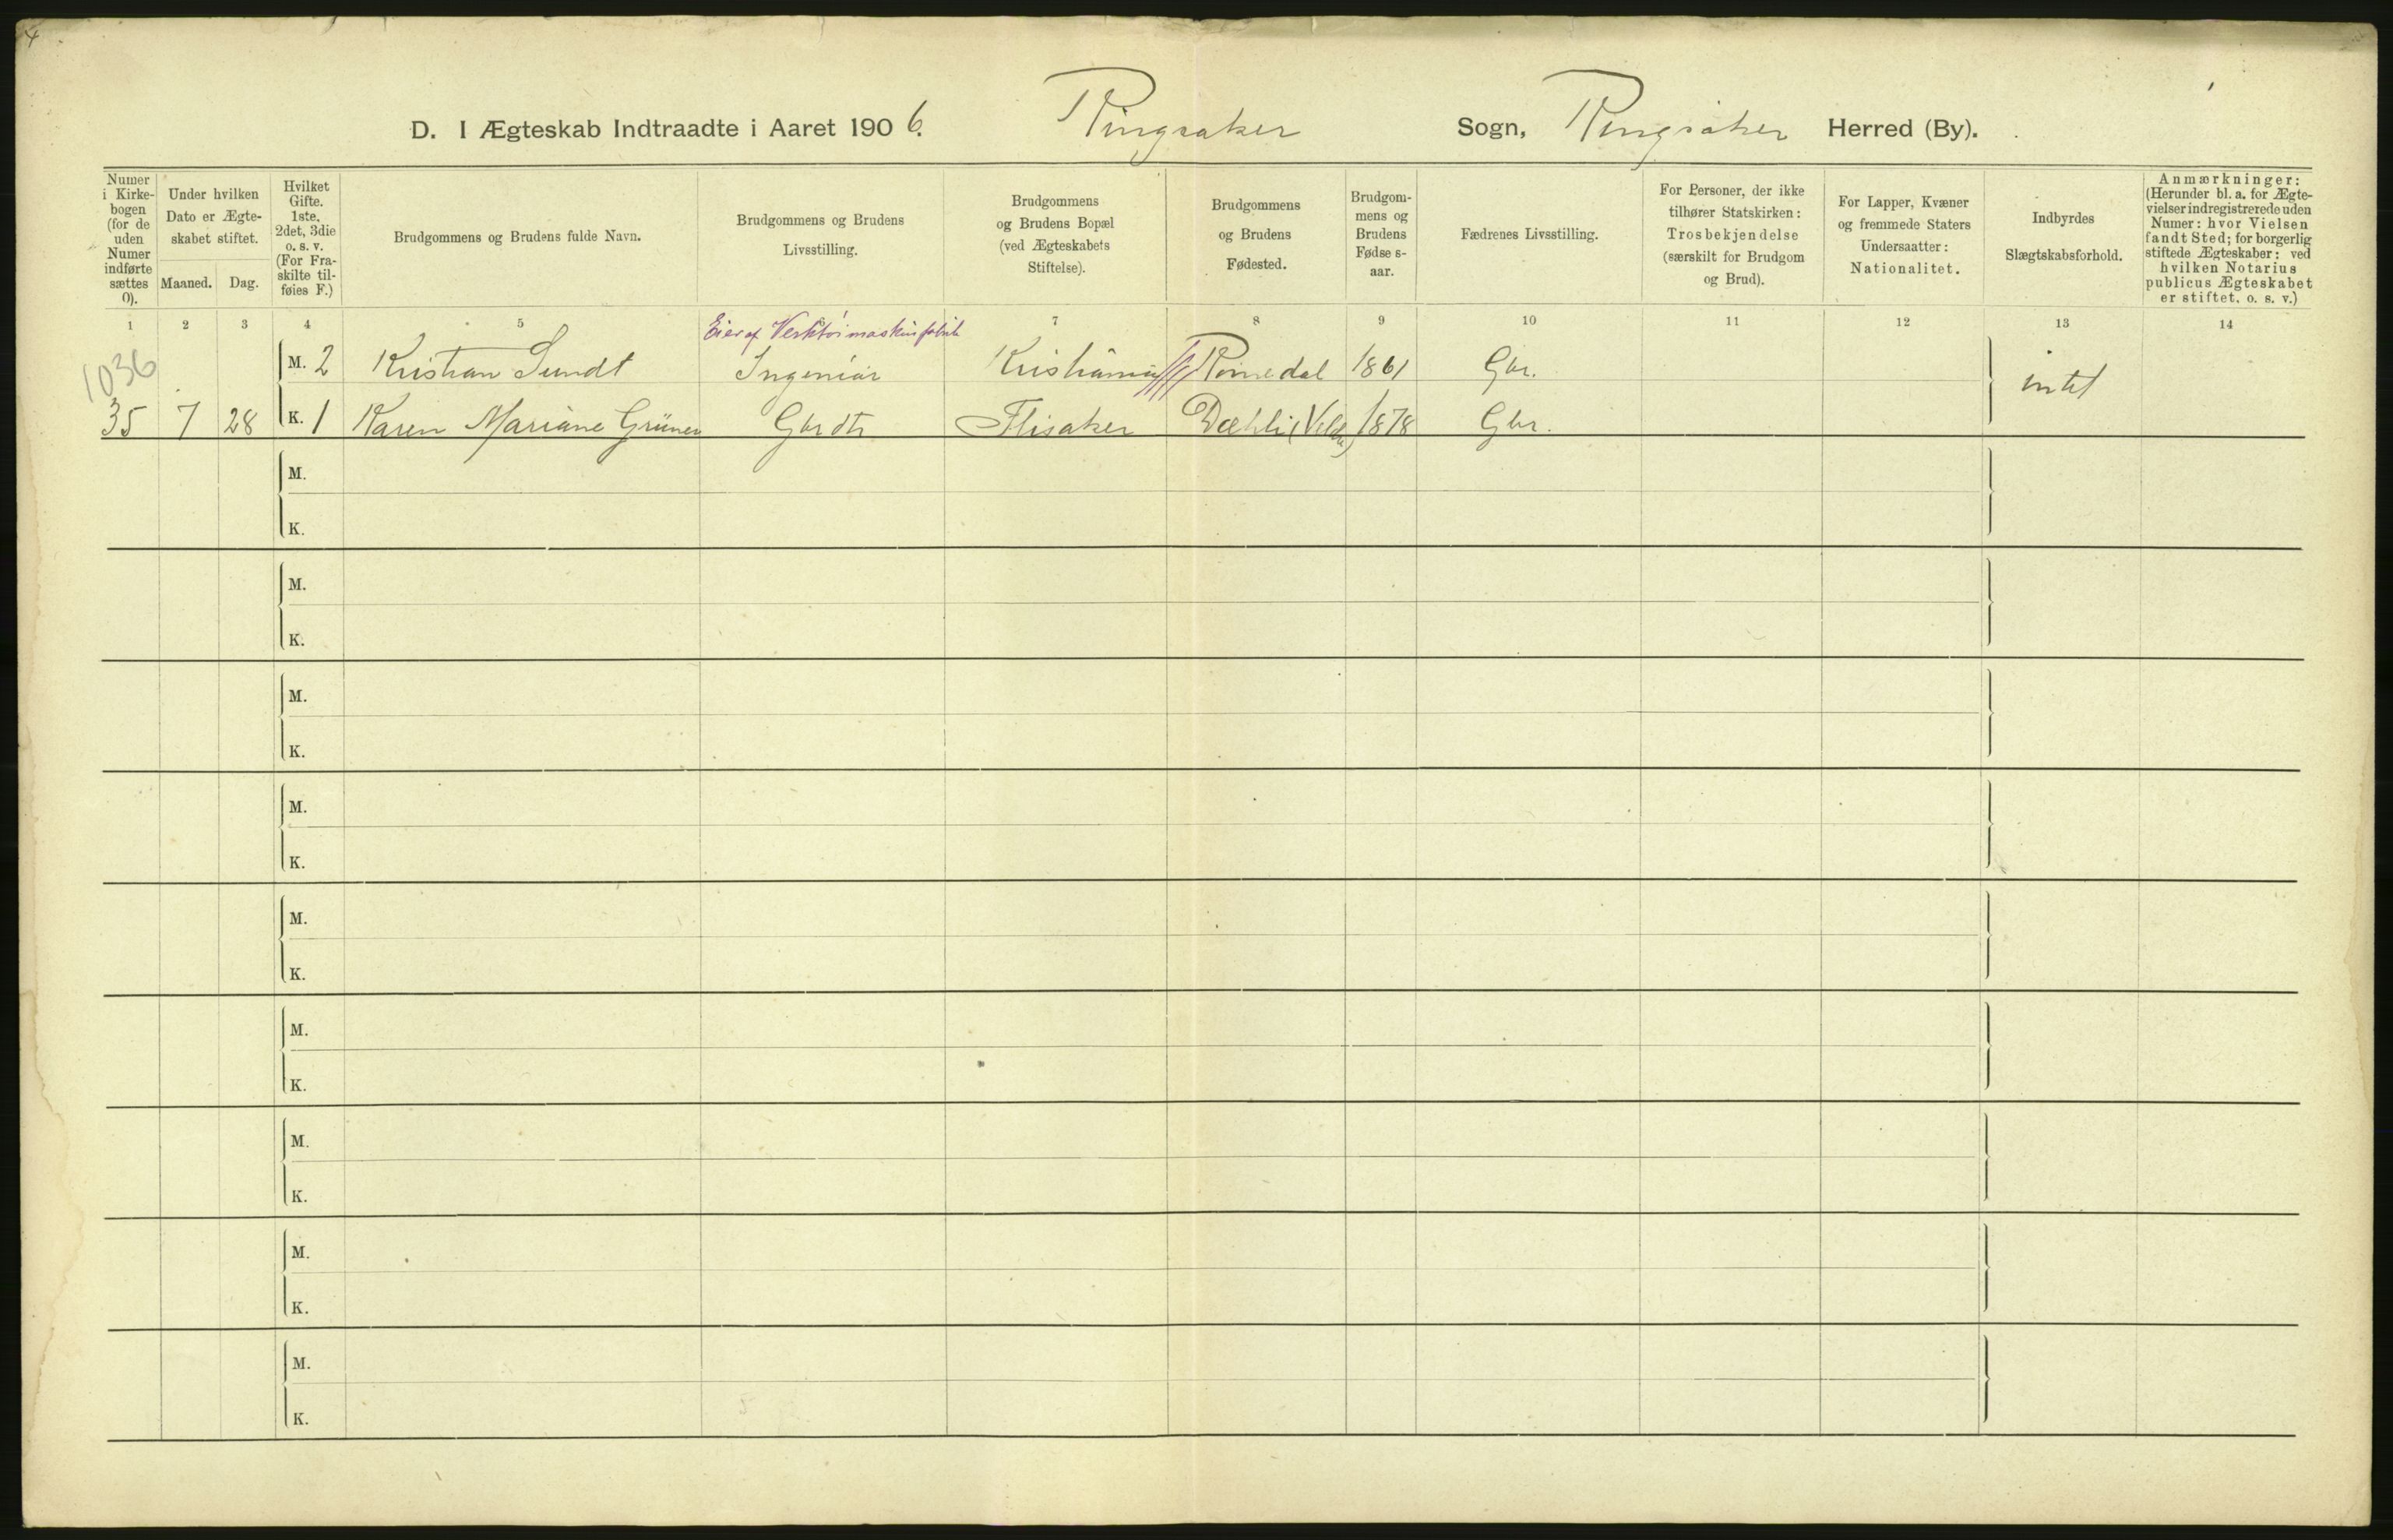 4
D. I Ægteskab Indtraadte i Aaret 1906. Ringsaker Sogn, Ringsaker Herred (By).
Numer i Kirkebogen (for de uden Numer indførte sættes 0).
Under hvilken Dato er Ægteskabet stiftet.
Maaned. Dag.
Hvilket Gifte. 1ste, 2det, 3die o. s. v. (For Fraskilte tilføies F.)
Brudgommens og Brudens fulde Navn.
Brudgommens og Brudens Livsstilling.
Brudgommens og Brudens Bopæl (ved Ægteskabets Stiftelse).
Brudgommens og Brudens Fødested.
Brudgommens og Brudens Fødselsaar.
Fædrenes Livsstilling.
For Personer, der ikke tilhører Statskirken: Trosbekjendelse (særskilt for Brudgom og Brud).
For Lapper, Kvæner og fremmede Staters Undersaatter: Nationalitet.
Indbyrdes Slægtskabsforhold.
Anmærkninger: (Herunder bl. a. for Ægtevielser indregistrerede uden Numer: hvor Vielsen fandt Sted; for borgerlig stiftede Ægteskaber: ved hvilken Notarius publicus Ægteskabet er stiftet, o. s. v.)
1 2 3 4 5 6 7 8 9 10 11 12 13 14
Eier af Verktøimaskinfabrik
1036 M. 2 Kristian Sundt Ingeniør Kristiania Romedal 1861 Gbr. intet
35 7 28 K. 1 Karen Mariane Grüner Gbrdtr Flisaker Dæhli (Veldre) 1878 Gbr.
M.
K.
M.
K.
M.
K.
M.
K.
M.
K.
M.
K.
M.
K.
M.
K.
M.
K.